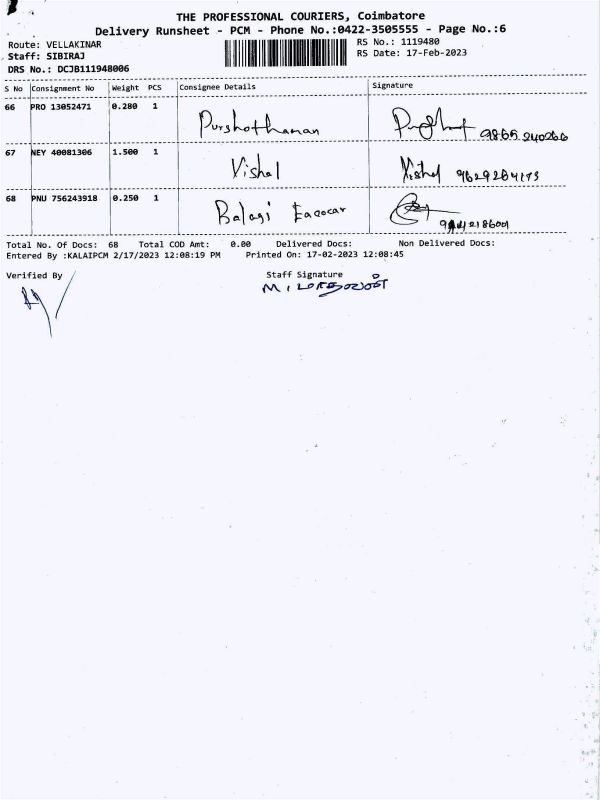 THE PROFESSIONAL COURIERS, Coimbatore
Delivery Runsheet - PCM - Phone No.:0422-3505555 - Page No.:6
Route: VELLAKINAR
RS No.: 1119480
Staff: SIBIRAJ
RS Date: 17-Feb-2023
DRS No.: DCJB111948006
S No Consignment No Weight PCS Consignee Details Signature
66 PRO 13052471 0.280 1 Purshothaman 9865240266
67 NEY 40081306 1.500 1 Vishal Vishal 9629284173
68 PNU 756243918 0.250 1 Balagi
Total No. Of Docs: 68 Total COD Amt: 0.00 Delivered Docs: Non Delivered Docs:
Entered By :KALAIPCM 2/17/2023 12:08:19 PM Printed On: 17-02-2023 12:08:45
Verified By Staff Signature